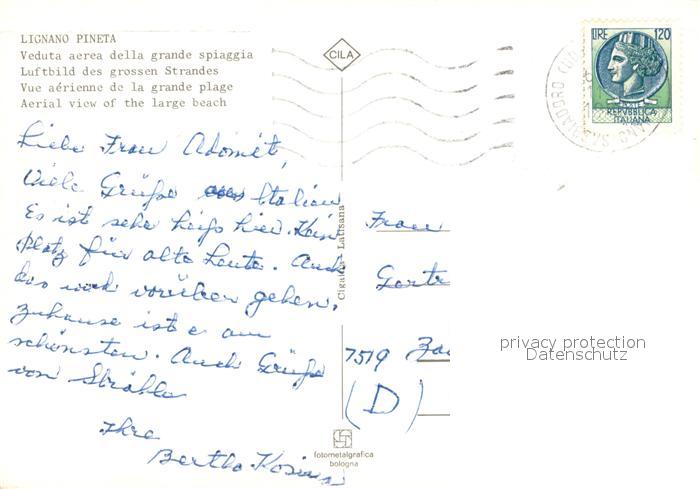 LIGNANO PINETA
Veduta aerea della grande spiaggia
Luftbild des grossen Strandes
Vue aérienne de la grande plage
Aerial view of the large beach
CILA
LIRE 120
REPVBBLICA
ITALIANA
Liebe Frau Adomét,
Viele Grüße aus Italien
Es ist sehr heiß hier. Kein
Platz für alte Leute. Auch
das wird vorüber gehen.
Zuhause ist e am
schönsten. Auch Grüße
von Ströhle
Ihre
Bertha
Latisana
Frau
7519
(D)
fotometalgrafica
bologna
privacy protection
Datenschutz